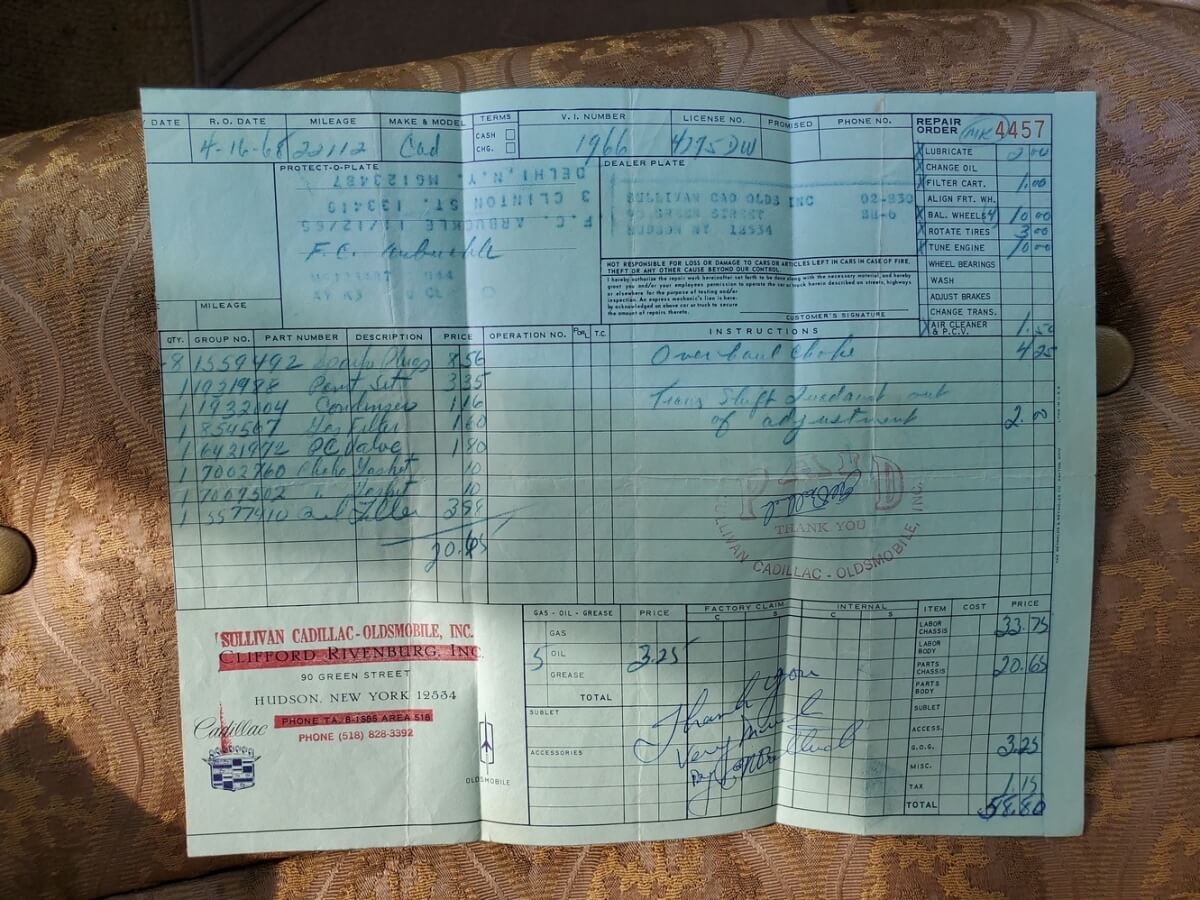 DATE R.O. DATE MILEAGE MAKE & MODEL TERMS V. I. NUMBER LICENSE NO. PROMISED PHONE NO. REPAIR ORDER MK 4457
4-16-68 22112 Cad CASH CHG. 1966 4775DW
PROTECT-O-PLATE DEALER PLATE
DELHI, N.Y. MG123487
3 CLINTON ST. 133419
F. C. ARBUCKLE 11/12/65
F.C. Arbuckle
SULLIVAN CAD OLDS INC 02-830
90 GREEN STREET
HUDSON NY 12534
MILEAGE
NOT RESPONSIBLE FOR LOSS OR DAMAGE TO CARS OR ARTICLES LEFT IN CARS IN CASE OF FIRE, THEFT OR ANY OTHER CAUSE BEYOND OUR CONTROL.
I hereby authorize the repair work hereinafter set forth to be done along with the necessary material, and hereby
grant you and/or your employees permission to operate the car or truck herein described on streets, highways
or elsewhere for the purpose of testing and/or
inspection. An express mechanic's lien is here-
by acknowledged on above car or truck to secure
the amount of repairs thereto.
CUSTOMER'S SIGNATURE
X LUBRICATE 2 00
X CHANGE OIL
X FILTER CART. 1.00
ALIGN FRT. WH.
X BAL. WHEELS 4 10 00
X ROTATE TIRES 3 00
X TUNE ENGINE 10 00
WHEEL BEARINGS
WASH
ADJUST BRAKES
CHANGE TRANS.
X AIR CLEANER & P.C.V. 1.50
QTY. GROUP NO. PART NUMBER DESCRIPTION PRICE OPERATION NO. P or L T.C. INSTRUCTIONS
8 1559492 Spark Plugs 8.56
1 1931988 Point Sett 3 35
1 1932004 Condenser 1 16
1 854567 Gas Filter 1 60
1 6421972 PC Valve 1 80
1 7002760 Choke Gasket 10
1 7009502 " Gasket 10
1 5577910 Oil Filter 3 98
20.65
Overhaul Choke 4 25
Trans Shift Quadrant out
of adjustment 2.00
PAID
THANK YOU
SULLIVAN CADILLAC - OLDSMOBILE, INC.
SULLIVAN CADILLAC-OLDSMOBILE, INC.
CLIFFORD RIVENBURG, INC.
90 GREEN STREET
HUDSON, NEW YORK 12534
PHONE TA. 8-1585 AREA 518
PHONE (518) 828-3392
Cadillac
OLDSMOBILE
GAS - OIL - GREASE PRICE
GAS
5 OIL 3.25
GREASE
TOTAL
SUBLET
ACCESSORIES
FACTORY CLAIM INTERNAL
C S C S
Thank you
Very Much
ITEM COST PRICE
LABOR CHASSIS 33.75
LABOR BODY
PARTS CHASSIS 20.65
PARTS BODY
SUBLET
ACCESS.
G.O.G. 3.25
MISC.
TAX 1.15
TOTAL 58.80